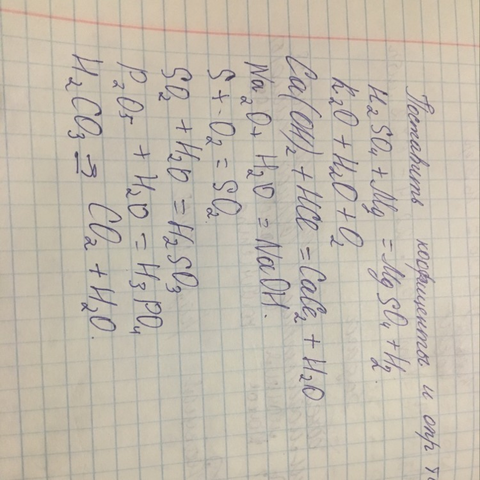 Расставить коофициенты и опр
H₂SO₄ + Mg = MgSO₄ + H₂.
K₂O + H₂O + O₂
Ca(OH)₂ + HCl = CaCl₂ + H₂O
Na₂O + H₂O = NaOH.
S + O₂ = SO₂.
SO₂ + H₂O = H₂SO₃
P₂O₅ + H₂O = H₃PO₄
H₂CO₃ = CO₂ + H₂O.